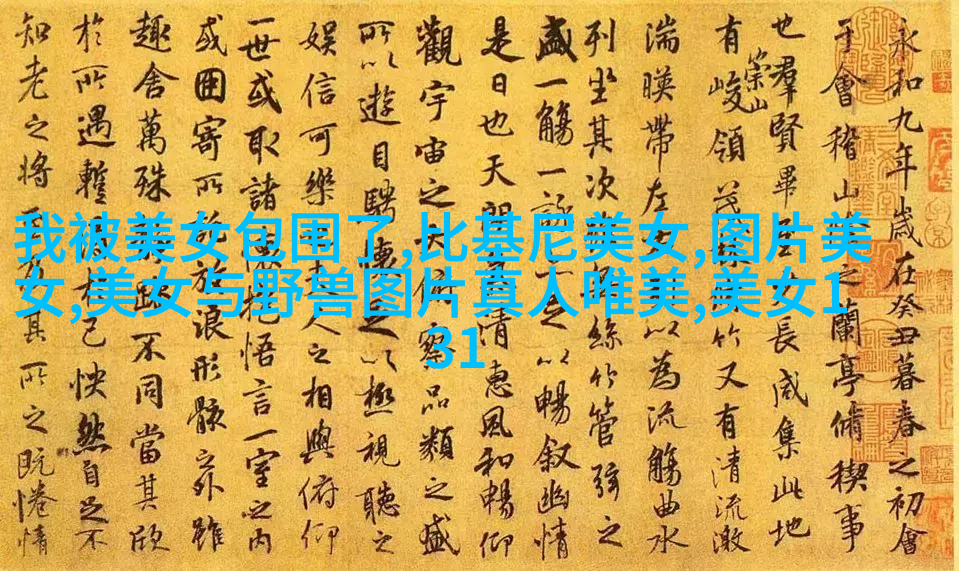 我被美女包围了,比基尼美女,图片美
女,美女与野兽图片真人唯美,美女1
31
永和九年歲在癸丑暮春之初會
于會稽山之蘭亭脩稧事
也羣賢畢長咸集此地
有崇山峻領茂竹又有清流激
湍暎帶左為流觴曲水
列坐其次絲竹管弦之
盛一觴一詠以暢叙幽情
是日也天朗清惠風和暢仰
觀宇宙之大俯察品類之盛
所以遊目騁懷足以極視聽之
娛信可樂夫人之相與俯仰
一世或取諸懷抱悟言一室之內
或因寄所放浪形骸之外雖
趣舍萬殊躁不同當其欣
於所遇蹔於己怏然自足不
知老之將及其所之既惓情